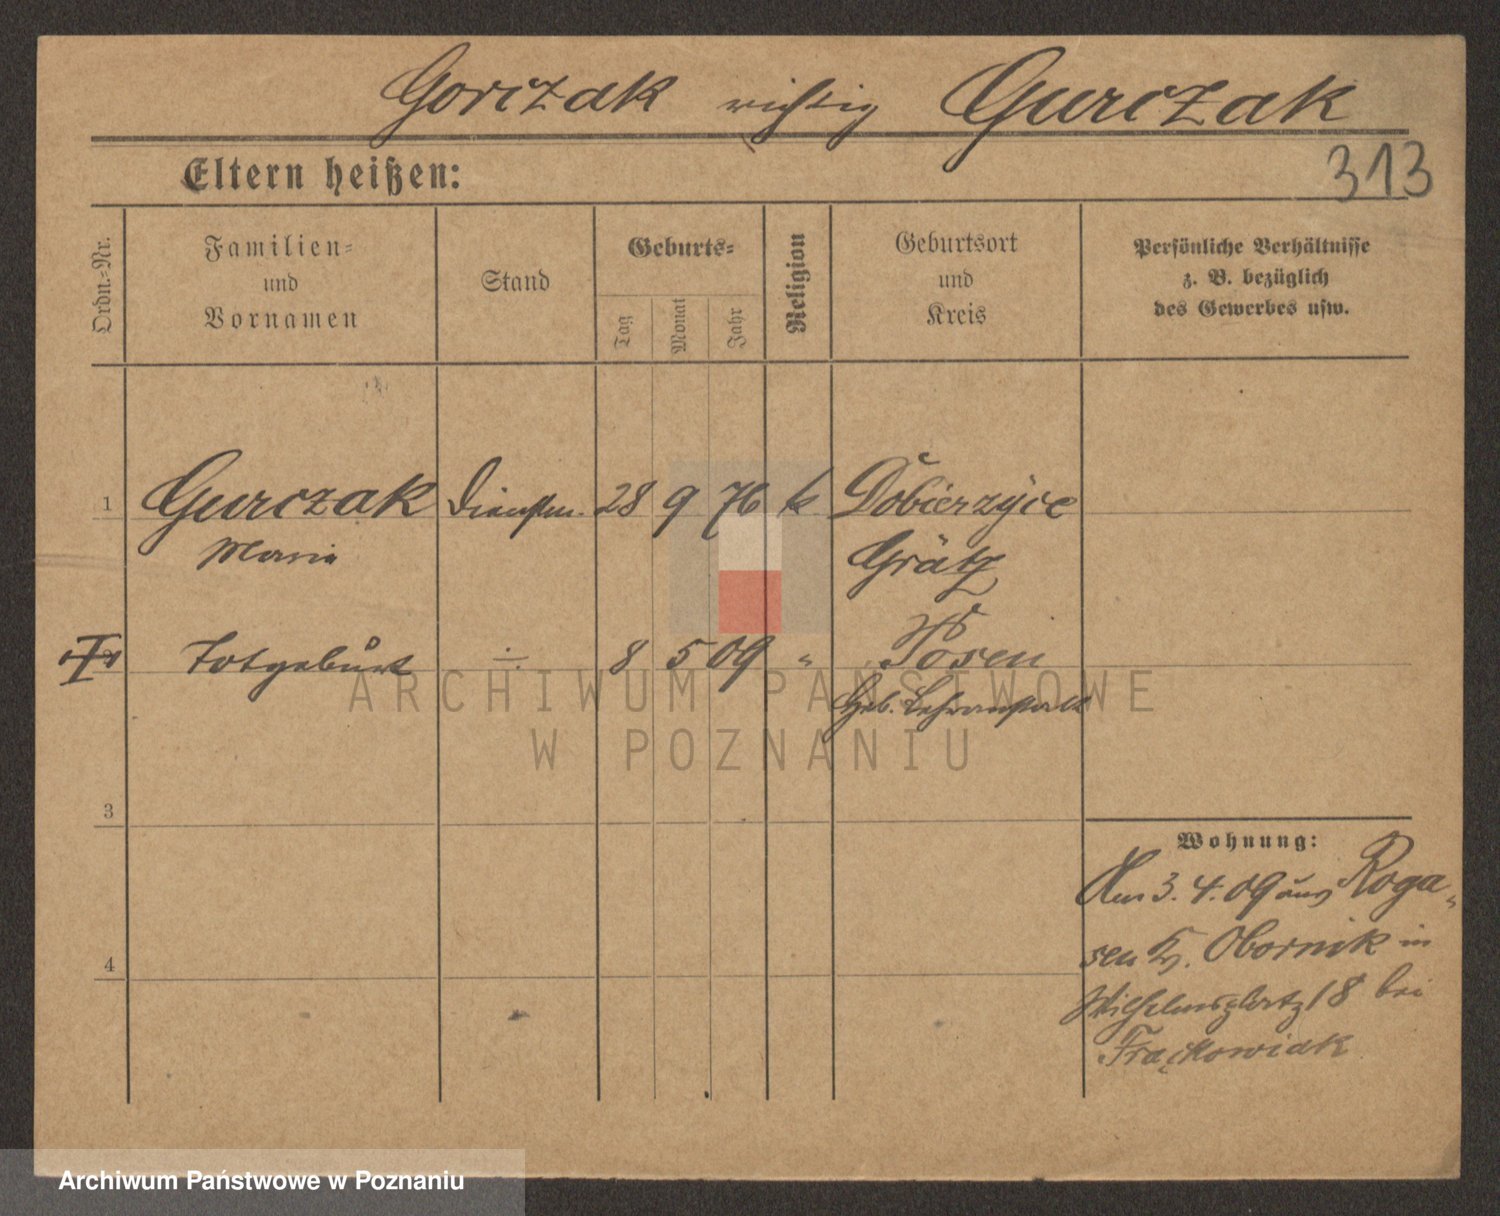 Gorczak richtig Gurczak
Eltern heißen:
313
Ordn.-Nr.
Familien-
und
Vornamen
Stand
Geburts-
Tag
Monat
Jahr
Religion
Geburtsort
und
Kreis
Persönliche Verhältnisse
z. B. bezüglich
des Gewerbes usw.
1 Gurczak Dienstm. 28 9 76 k. Dobierzyce
Marie Grätz
Totgeburt ÷ 8 5 09 " Posen
Geb. Lehranstalt
3
4
Wohnung:
Am 3. 4. 09 aus Roga-
sen Kr. Obornik in
Wilhelmsplatz 18 bei
Frąckowiak
ARCHIWUM PAŃSTWOWE
W POZNANIU
Archiwum Państwowe w Poznaniu